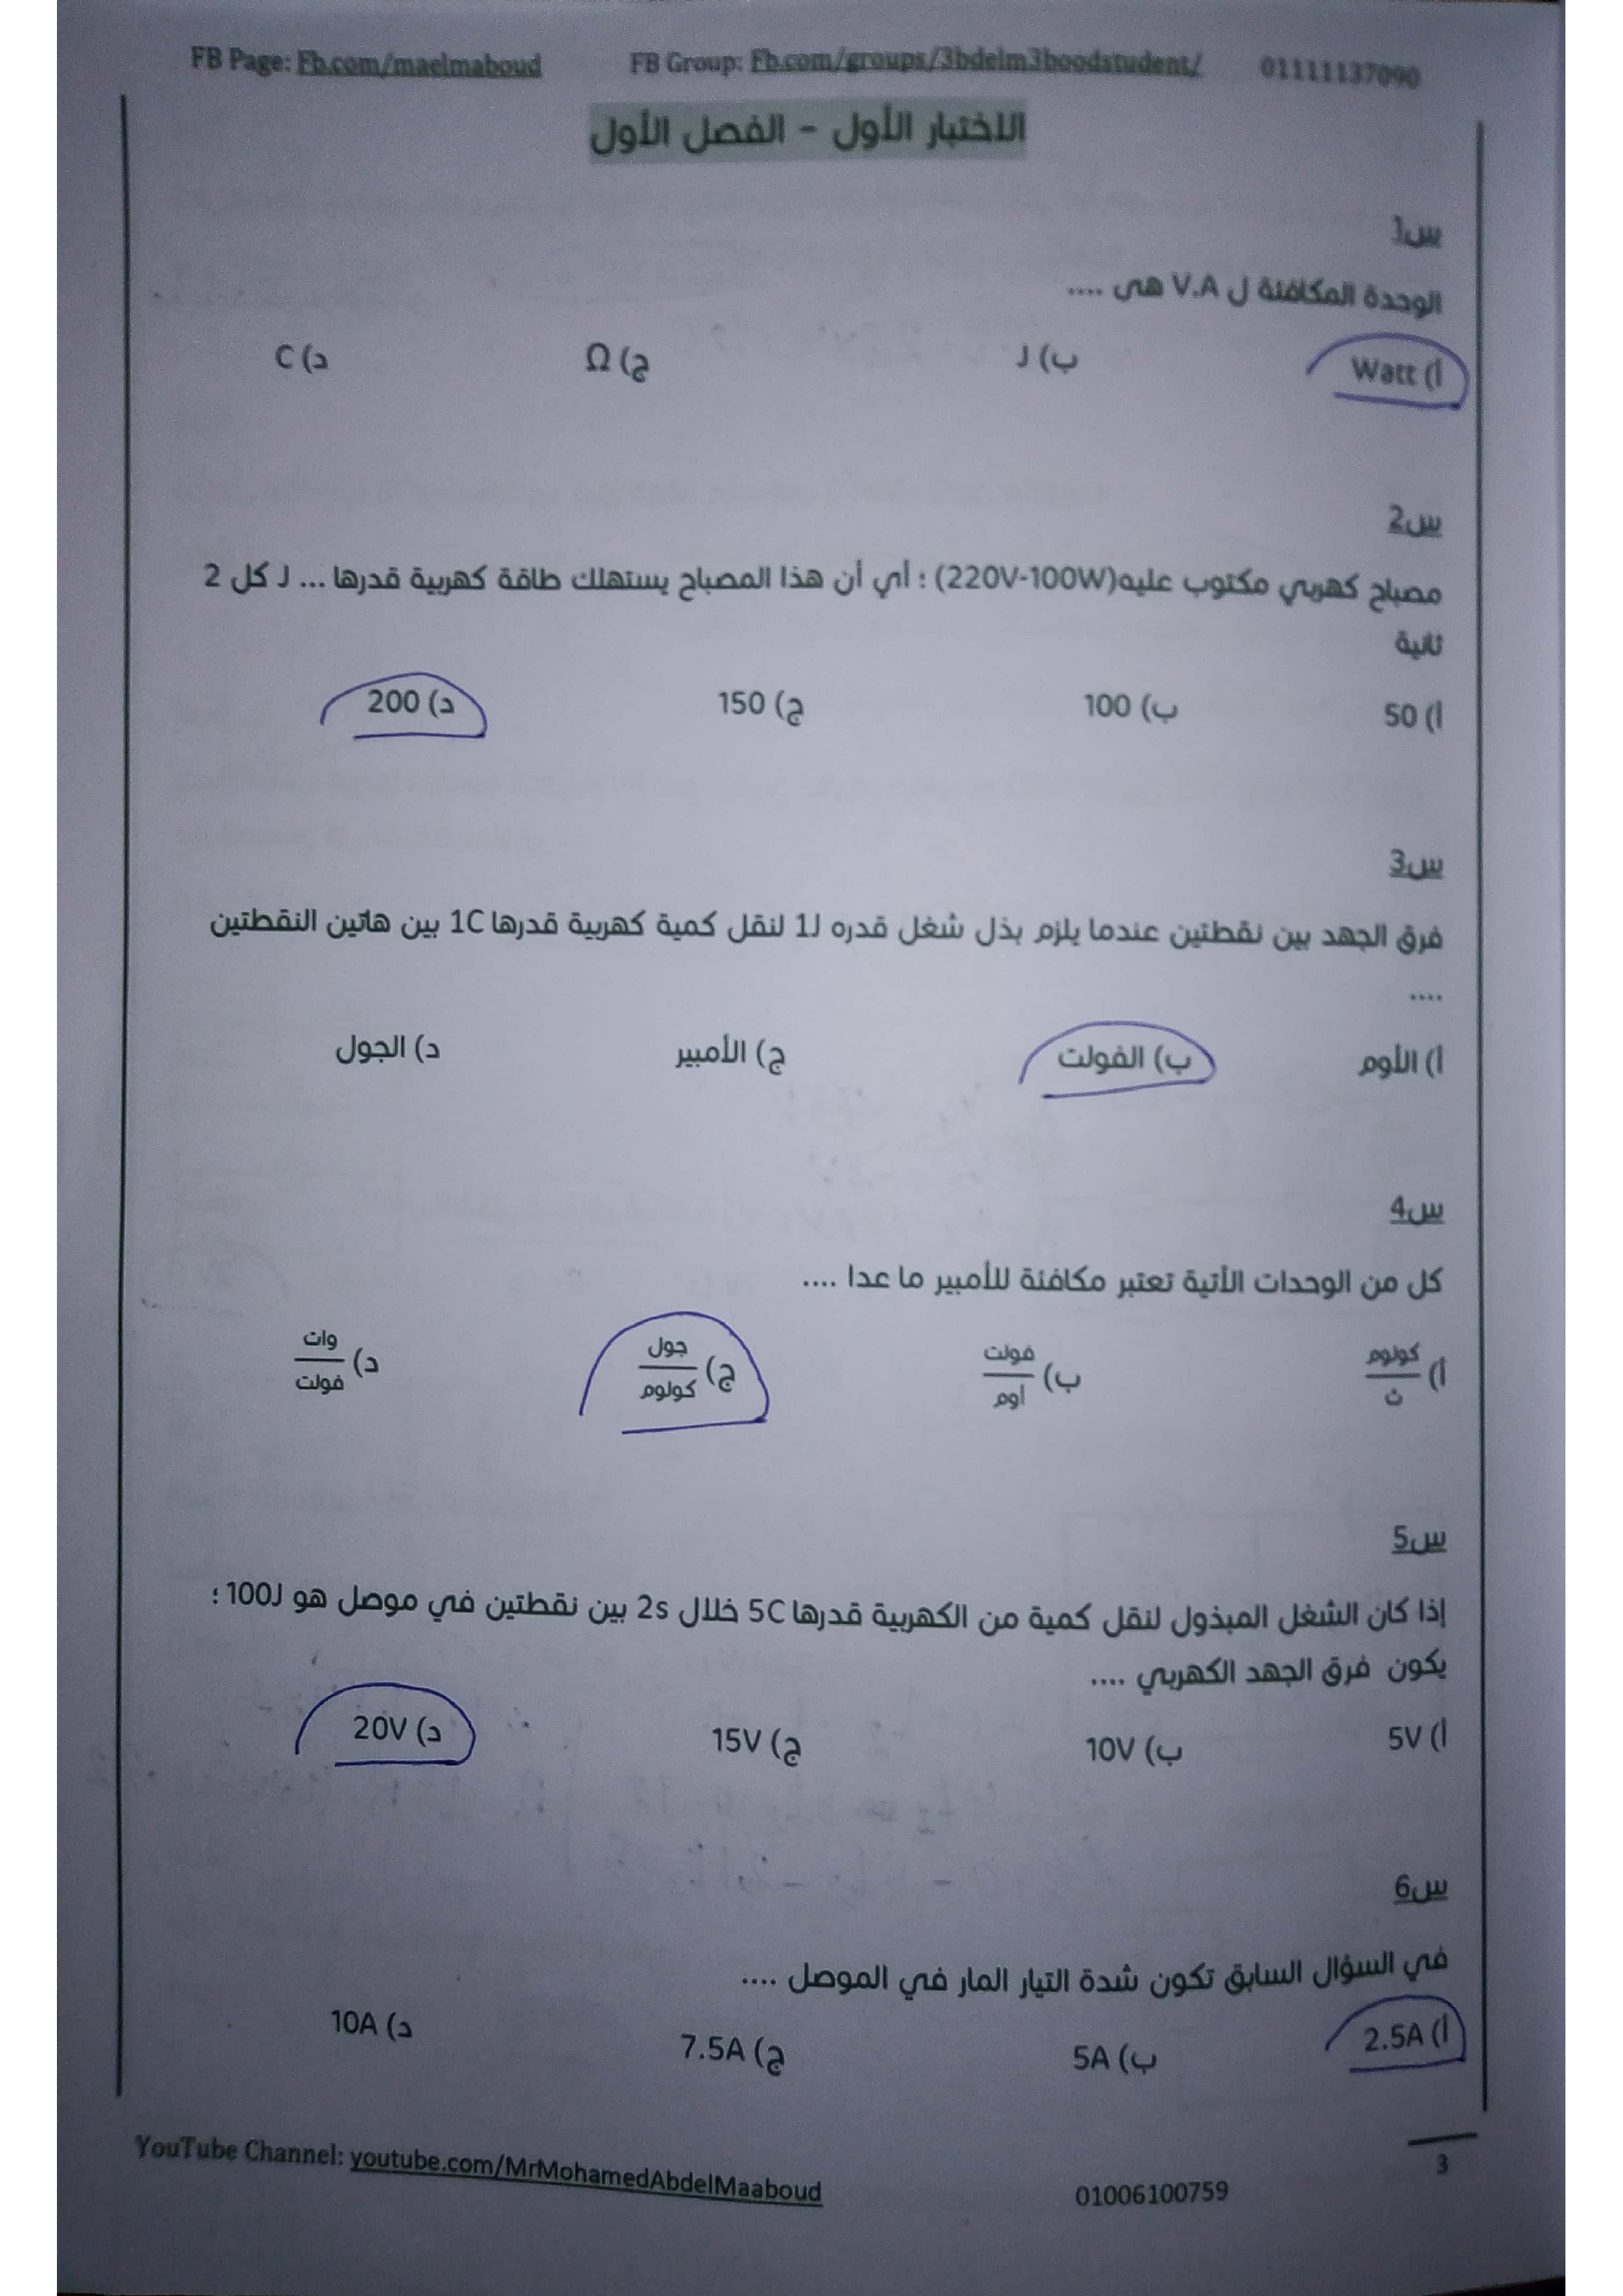 FB Page: Fb.com/maelmaboud FB Group: Fb.com/groups/3bdelm3boodstudent/ 01111137090
الاختبار الأول - الفصل الأول
س1
الوحدة المكافئة ل V.A هي ....
أ) Watt ب) J ج) Ω د) C
س2
مصباح كهربي مكتوب عليه(220V-100W) ؛ أي أن هذا المصباح يستهلك طاقة كهربية قدرها ... J كل 2
ثانية
أ) 50 ب) 100 ج) 150 د) 200
س3
فرق الجهد بين نقطتين عندما يلزم بذل شغل قدره 1J لنقل كمية كهربية قدرها 1C بين هاتين النقطتين
....
أ) الأوم ب) الفولت ج) الأمبير د) الجول
س4
كل من الوحدات الأتية تعتبر مكافئة للأمبير ما عدا ....
أ) كولوم/ث ب) فولت/أوم ج) جول/كولوم د) وات/فولت
س5
إذا كان الشغل المبذول لنقل كمية من الكهربية قدرها 5C خلال 2s بين نقطتين في موصل هو 100J ؛
يكون فرق الجهد الكهربي ....
أ) 5V ب) 10V ج) 15V د) 20V
س6
في السؤال السابق تكون شدة التيار المار في الموصل ....
أ) 2.5A ب) 5A ج) 7.5A د) 10A
3
YouTube Channel: youtube.com/MrMohamedAbdelMaaboud 01006100759